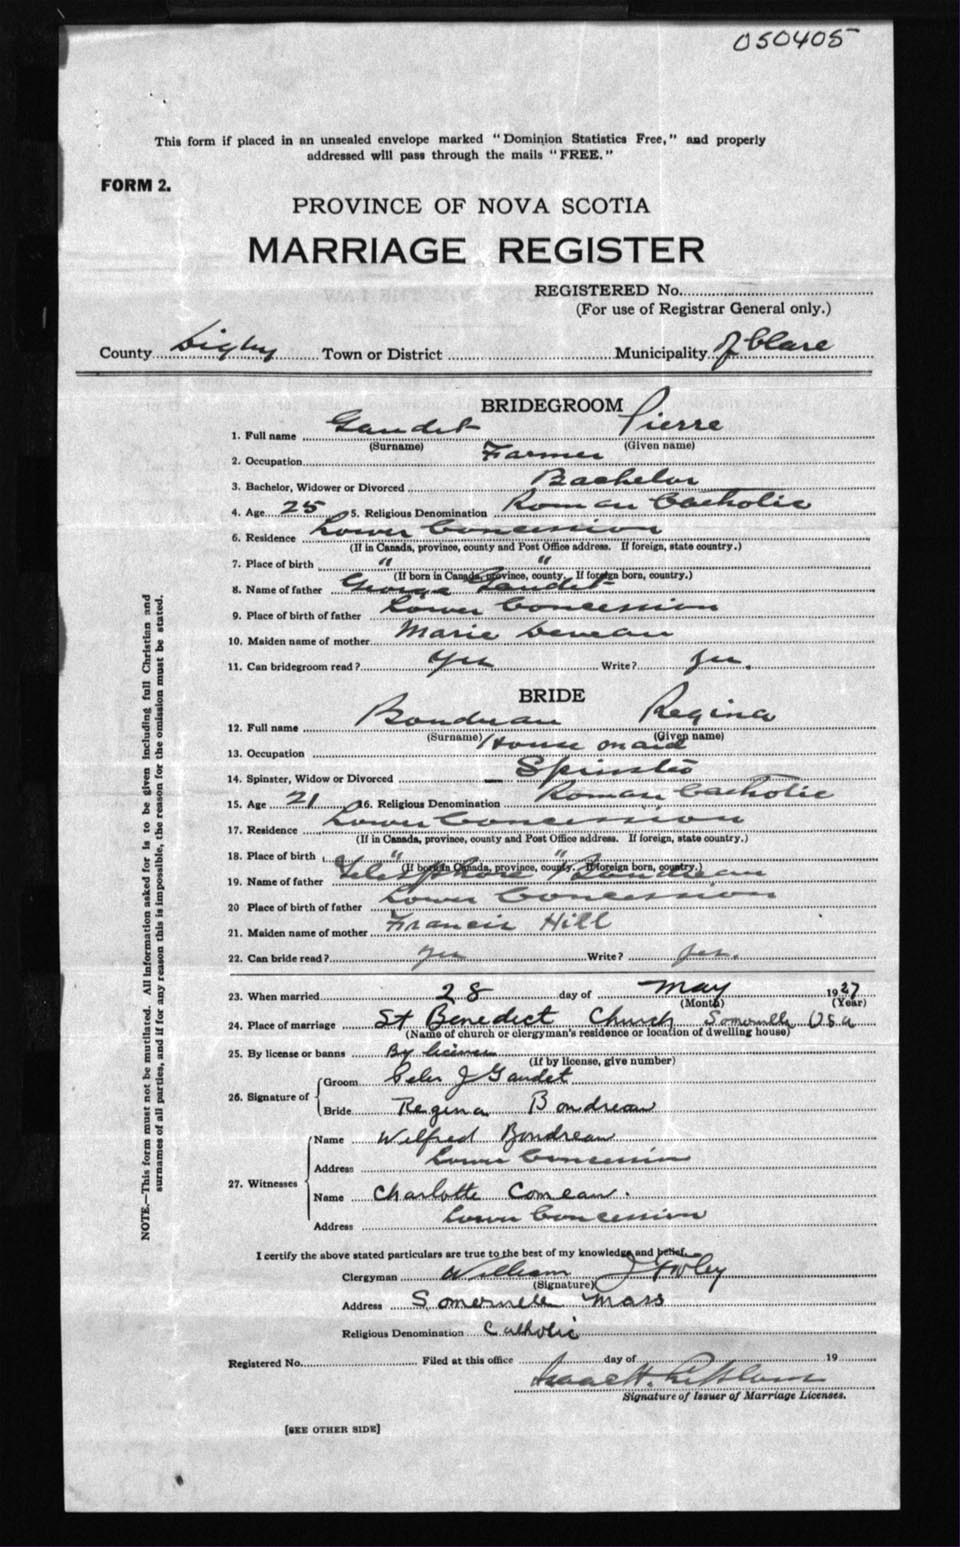 050405
This form if placed in an unsealed envelope marked "Dominion Statistics Free," and properly
addressed will pass through the mails "FREE."
FORM 2.
PROVINCE OF NOVA SCOTIA
MARRIAGE REGISTER
REGISTERED No.
(For use of Registrar General only.)
County Digby Town or District Municipality of Clare
BRIDEGROOM
1. Full name Gaudet Pierre
(Surname) (Given name)
2. Occupation Farmer
3. Bachelor, Widower or Divorced Bachelor
4. Age 25 5. Religious Denomination Roman Catholic
6. Residence Lower Concession
(If in Canada, province, county and Post Office address. If foreign, state country.)
7. Place of birth " "
(If born in Canada, province, county. If foreign born, country.)
8. Name of father George Gaudet
9. Place of birth of father Lower Concession
10. Maiden name of mother Marie Deveau
11. Can bridegroom read? Yes Write? Yes.
BRIDE
12. Full name Boudreau Regina
(Surname) (Given name)
13. Occupation House maid
14. Spinster, Widow or Divorced Spinster
15. Age 21 16. Religious Denomination Roman Catholic
17. Residence Lower Concession
(If in Canada, province, county and Post Office address. If foreign, state country.)
18. Place of birth " "
(If born in Canada, province, county. If foreign born, country.)
19. Name of father Telesphore Boudreau
20 Place of birth of father Lower Concession
21. Maiden name of mother Francis Hill
22. Can bride read? Yes Write? Yes.
23. When married 28 day of May 1927
(Month) (Year)
24. Place of marriage St Benedict Church Somerville U.S.A
(Name of church or clergyman's residence or location of dwelling house)
25. By license or banns By license
(If by license, give number)
26. Signature of Groom J Gaudet
Bride Regina Boudreau
27. Witnesses Name Wilfred Boudreau
Address Lower Concession
Name Charlotte Comeau.
Address Lower Concession
I certify the above stated particulars are true to the best of my knowledge and belief.
Clergyman William J Foley
(Signature)
Address Somerville Mass
Religious Denomination Catholic
Registered No. Filed at this office day of 19
Isaac H.
Signature of Issuer of Marriage Licenses.
[SEE OTHER SIDE]
NOTE.—This form must not be mutilated. All information asked for is to be given including full Christian and
surnames of all parties, and if for any reason this is impossible, the reason for the omission must be stated.